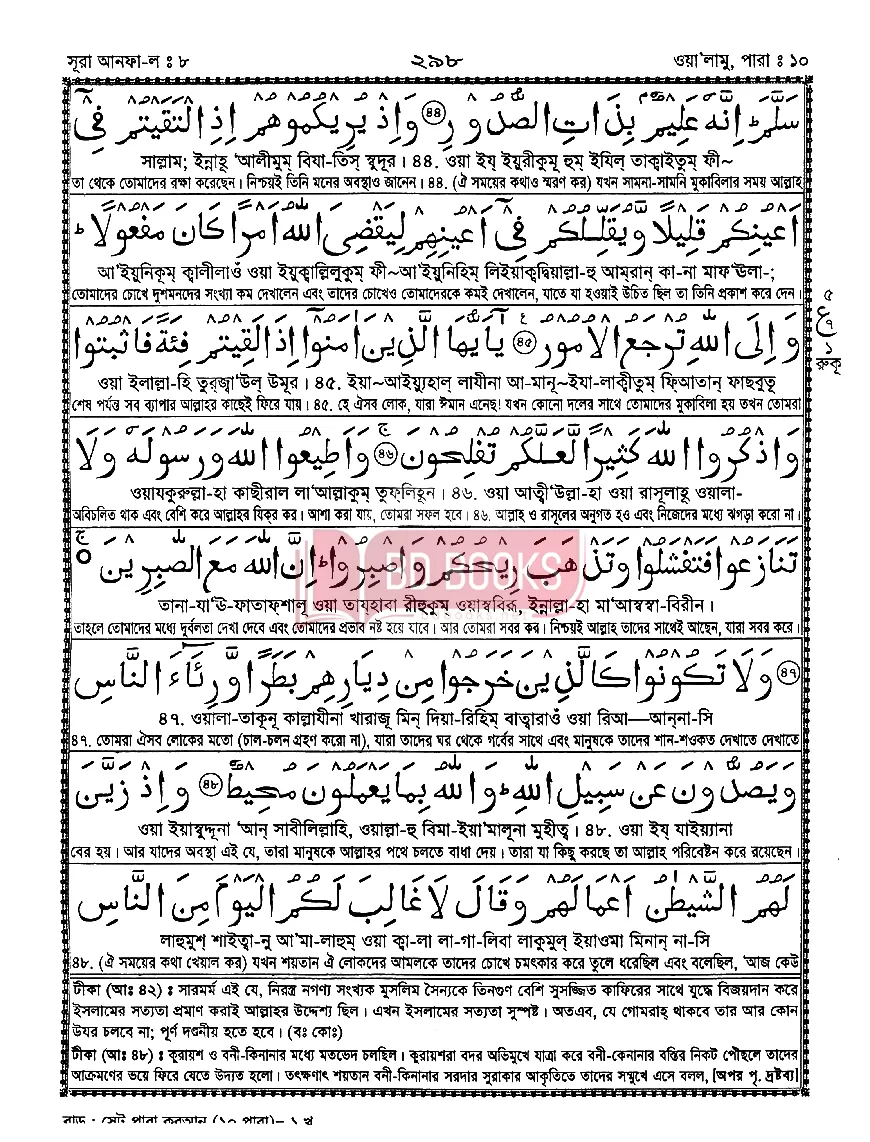 সূরা আনফা-ল ঃ ৮ ২৯৮ ওয়া'লামূ, পারা ঃ ১০
سَلَّمَ ؕ اِنَّهٗ عَلِیْمٌۢ بِذَاتِ الصُّدُوْرِ ﴿۴۴﴾ وَاِذْ یُرِیْكُمُوْهُمْ اِذِ الْتَقَیْتُمْ فِیْۤ
সাল্লাম; ইন্নাহূ 'আলীমুম্ বিযা-তিস্ ছুদূর। ৪৪. ওয়া ইয্ ইয়ুরীকুমূ হুম্ ইযিল্ তাক্বাইতুম্ ফী~
তা থেকে তোমাদের রক্ষা করেছেন। নিশ্চয়ই তিনি মনের অবস্থাও জানেন। ৪৪. (ঐ সময়ের কথাও স্মরণ কর) যখন সামনা-সামনি মুকাবিলার সময় আল্লাহ
اَعْیُنِكُمْ قَلِیْلًا وَّیُقَلِّلُكُمْ فِیْۤ اَعْیُنِهِمْ لِیَقْضِیَ اللهُ اَمْرًا كَانَ مَفْعُوْلًا ؕ
আ'ইয়ুনিকুম্ ক্বালীলাওঁ ওয়া ইয়ুক্বাল্লিলুকুম্ ফী~আ'ইয়ুনিহিম্ লিইয়াক্বদ্বিয়াল্লা-হু আম্‌রান্ কা-না মাফ্'উলা-;
তোমাদের চোখে দুশমনদের সংখ্যা কম দেখালেন এবং তাদের চোখেও তোমাদেরকে কমই দেখালেন, যাতে যা হওয়াই উচিত ছিল তা তিনি প্রকাশ করে দেন।
وَاِلَی اللهِ تُرْجَعُ الْاُمُوْرُ ﴿۴۵﴾ یٰۤاَیُّهَا الَّذِیْنَ اٰمَنُوْۤا اِذَا لَقِیْتُمْ فِئَةً فَاثْبُتُوْا
৫
ع
৭
১
রুকূ
ওয়া ইলাল্লা-হি তুর্‌জ্বা'উল্ উমূর। ৪৫. ইয়া~আইয়ুহাল্ লাযীনা আ-মানূ~ইযা-লাক্বীতুম্ ফিআতান্ ফাছ্‌বুতূ
শেষ পর্যন্ত সব ব্যাপার আল্লাহর কাছেই ফিরে যায়। ৪৫. হে ঐসব লোক, যারা ঈমান এনেছ! যখন কোনো দলের সাথে তোমাদের মুকাবিলা হয় তখন তোমরা
وَاذْكُرُوا اللهَ كَثِیْرًا لَّعَلَّكُمْ تُفْلِحُوْنَ ۚ﴿۴۶﴾ وَاَطِیْعُوا اللهَ وَرَسُوْلَهٗ وَلَا
ওয়াযকুরুল্লা-হা কাছীরাল লা'আল্লাকুম্ তুফ্‌লিহূন। ৪৬. ওয়া আত্বী'উল্লা-হা ওয়া রাসূলাহূ ওয়ালা-
অবিচলিত থাক এবং বেশি করে আল্লাহর যিক্‌র কর। আশা করা যায়, তোমরা সফল হবে। ৪৬. আল্লাহ ও রাসূলের অনুগত হও এবং নিজেদের মধ্যে ঝগড়া করো না।
تَنَازَعُوْا فَتَفْشَلُوْا وَتَذْهَبَ رِیْحُكُمْ وَاصْبِرُوْا ؕ اِنَّ اللهَ مَعَ الصّٰبِرِیْنَ ۚ○
BD BOOKS
তানা-যা'উ-ফাতাফ্‌শালূ ওয়া তায্‌হাবা রীহুকুম্ ওয়াস্ববিরূ, ইন্নাল্লা-হা মা'আস্বস্বা-বিরীন।
তাহলে তোমাদের মধ্যে দুর্বলতা দেখা দেবে এবং তোমাদের প্রভাব নষ্ট হয়ে যাবে। আর তোমরা সবর কর। নিশ্চয়ই আল্লাহ তাদের সাথেই আছেন, যারা সবর করে।
﴿۴۷﴾ وَلَا تَكُوْنُوْا كَالَّذِیْنَ خَرَجُوْا مِنْ دِیَارِهِمْ بَطَرًا وَّرِئَآءَ النَّاسِ
৪৭. ওয়ালা-তাকূনূ কাল্লাযীনা খারাজূ মিন্ দিয়া-রিহিম্ বাত্বারাওঁ ওয়া রিআ—আন্‌না-সি
৪৭. তোমরা ঐসব লোকের মতো (চাল-চলন গ্রহণ করো না), যারা তাদের ঘর থেকে গর্বের সাথে এবং মানুষকে তাদের শান-শওকত দেখাতে দেখাতে
وَیَصُدُّوْنَ عَنْ سَبِیْلِ اللهِ ؕ وَاللهُ بِمَا یَعْمَلُوْنَ مُحِیْطٌ ﴿۴۸﴾ وَاِذْ زَیَّنَ
ওয়া ইয়াছুদ্দূনা 'আন্ সাবীলিল্লাহি, ওয়াল্লা-হু বিমা-ইয়া'মালূনা মুহীত্ব। ৪৮. ওয়া ইয্ যাইয়্যানা
বের হয়। আর যাদের অবস্থা এই যে, তারা মানুষকে আল্লাহর পথে চলতে বাধা দেয়। তারা যা কিছু করছে তা আল্লাহ পরিবেষ্টন করে রয়েছেন।
لَهُمُ الشَّیْطٰنُ اَعْمَالَهُمْ وَقَالَ لَا غَالِبَ لَكُمُ الْیَوْمَ مِنَ النَّاسِ
লাহুমুশ্ শাইত্বা-নু আ'মা-লাহুম্ ওয়া ক্বা-লা লা-গা-লিবা লাকুমুল্ ইয়াওমা মিনান্ না-সি
৪৮. (ঐ সময়ের কথা খেয়াল কর) যখন শয়তান ঐ লোকদের আমলকে তাদের চোখে চমৎকার করে তুলে ধরেছিল এবং বলেছিল, 'আজ কেউ
টীকা (আঃ ৪২) ঃ সারমর্ম এই যে, নিরস্ত্র নগণ্য সংখ্যক মুসলিম সৈন্যকে তিনগুণ বেশি সুসজ্জিত কাফিরের সাথে যুদ্ধে বিজয়দান করে
ইসলামের সত্যতা প্রমাণ করাই আল্লাহর উদ্দেশ্য ছিল। এখন ইসলামের সত্যতা সুস্পষ্ট। অতএব, যে গোমরাহ থাকবে তার আর কোন
উযর চলবে না; পূর্ণ দণ্ডনীয় হতে হবে। (বঃ কোঃ)
টীকা (আঃ ৪৮) ঃ কুরায়শ ও বনী-কিনানার মধ্যে মতভেদ চলছিল। কুরায়শরা বদর অভিমুখে যাত্রা করে বনী-কেনানার বস্তির নিকট পৌছলে তাদের
আক্রমণের ভয়ে ফিরে যেতে উদ্যত হলো। তৎক্ষণাৎ শয়তান বনী-কিনানার সরদার সুরাকার আকৃতিতে তাদের সম্মুখে এসে বলল, [অপর পৃ. দ্রষ্টব্য]